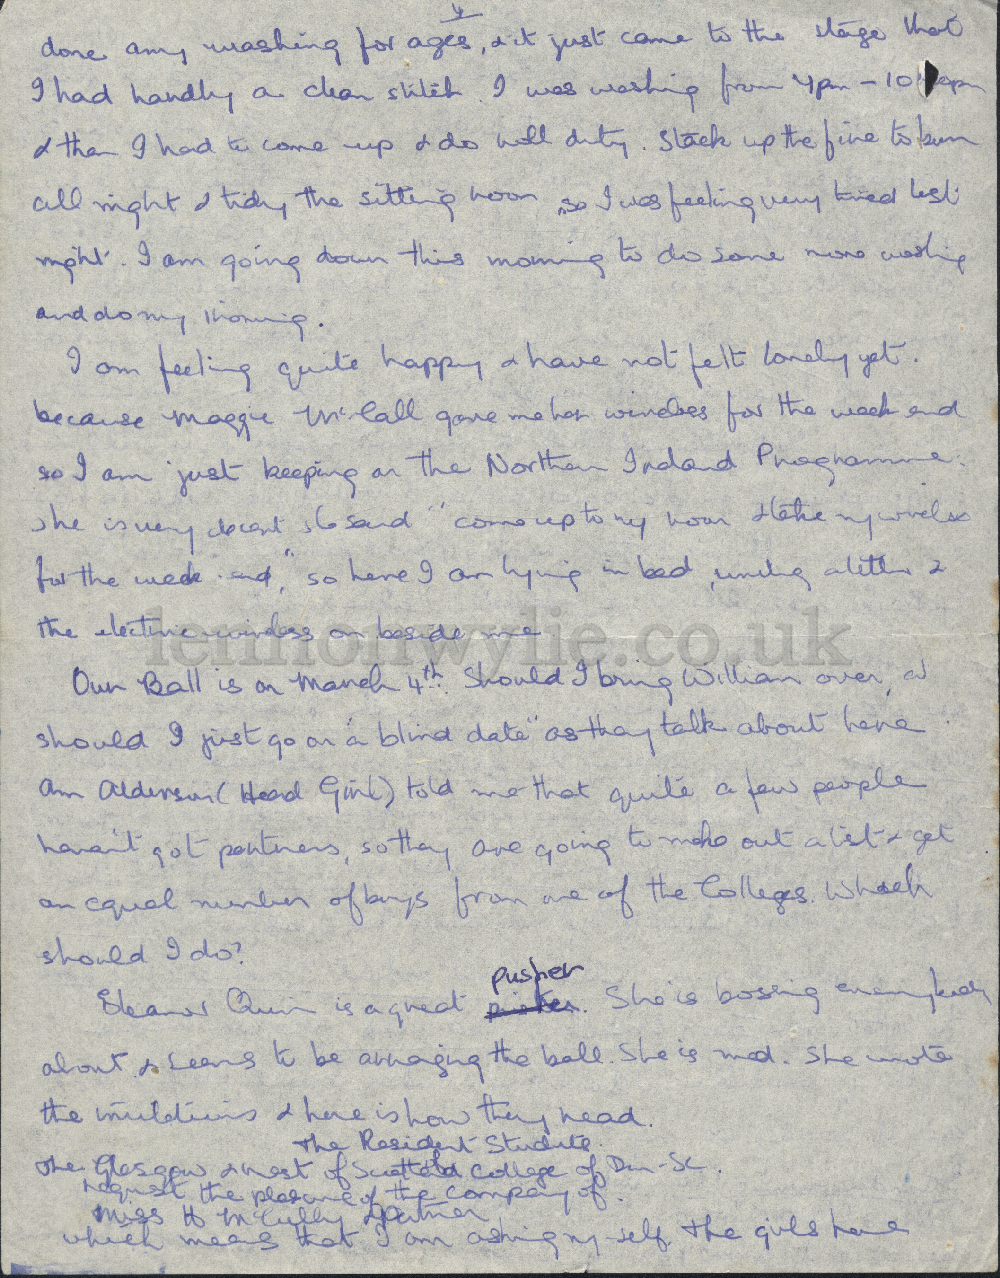 4
done any washing for ages, & it just came to the stage that
I had hardly a clean stitch. I was washing from 4pm - 10 pm
& then I had to come up & do hall duty. Stack up the fire to burn
all night & tidy the sitting room, so I was feeling very tired last
night. I am going down this morning to do some more washing
and do my ironing.
I am feeling quite happy & have not felt lonely yet.
because Maggie McCall gave me her wireless for the week end
so I am just keeping on the Northern Ireland Programme.
She is very decent she said "come up to my room & take my wireless
for the week-end," so here I am lying in bed, writing a letter &
the electric wireless on beside me
lennonwylie.co.uk
Our Ball is on March 4th. Should I bring William over, or
should I just go on a "blind date" as they talk about here
Ann Alderson (Head Girl) told me that quite a few people
haven't got partners, so they are going to make out a list & get
an equal number of boys from one of the Colleges. Which
should I do?
pusher
Eleanor Quin is a great. She is bossing everybody
about & seems to be arranging the ball. She is mad. She wrote
the invitations & here is how they read.
The Resident Students
The Glasgow & West of Scotland College of Dom-Sc.
request the pleasure of the company of.
Miss H McCully & partner
which means that I am asking my self. The girls here